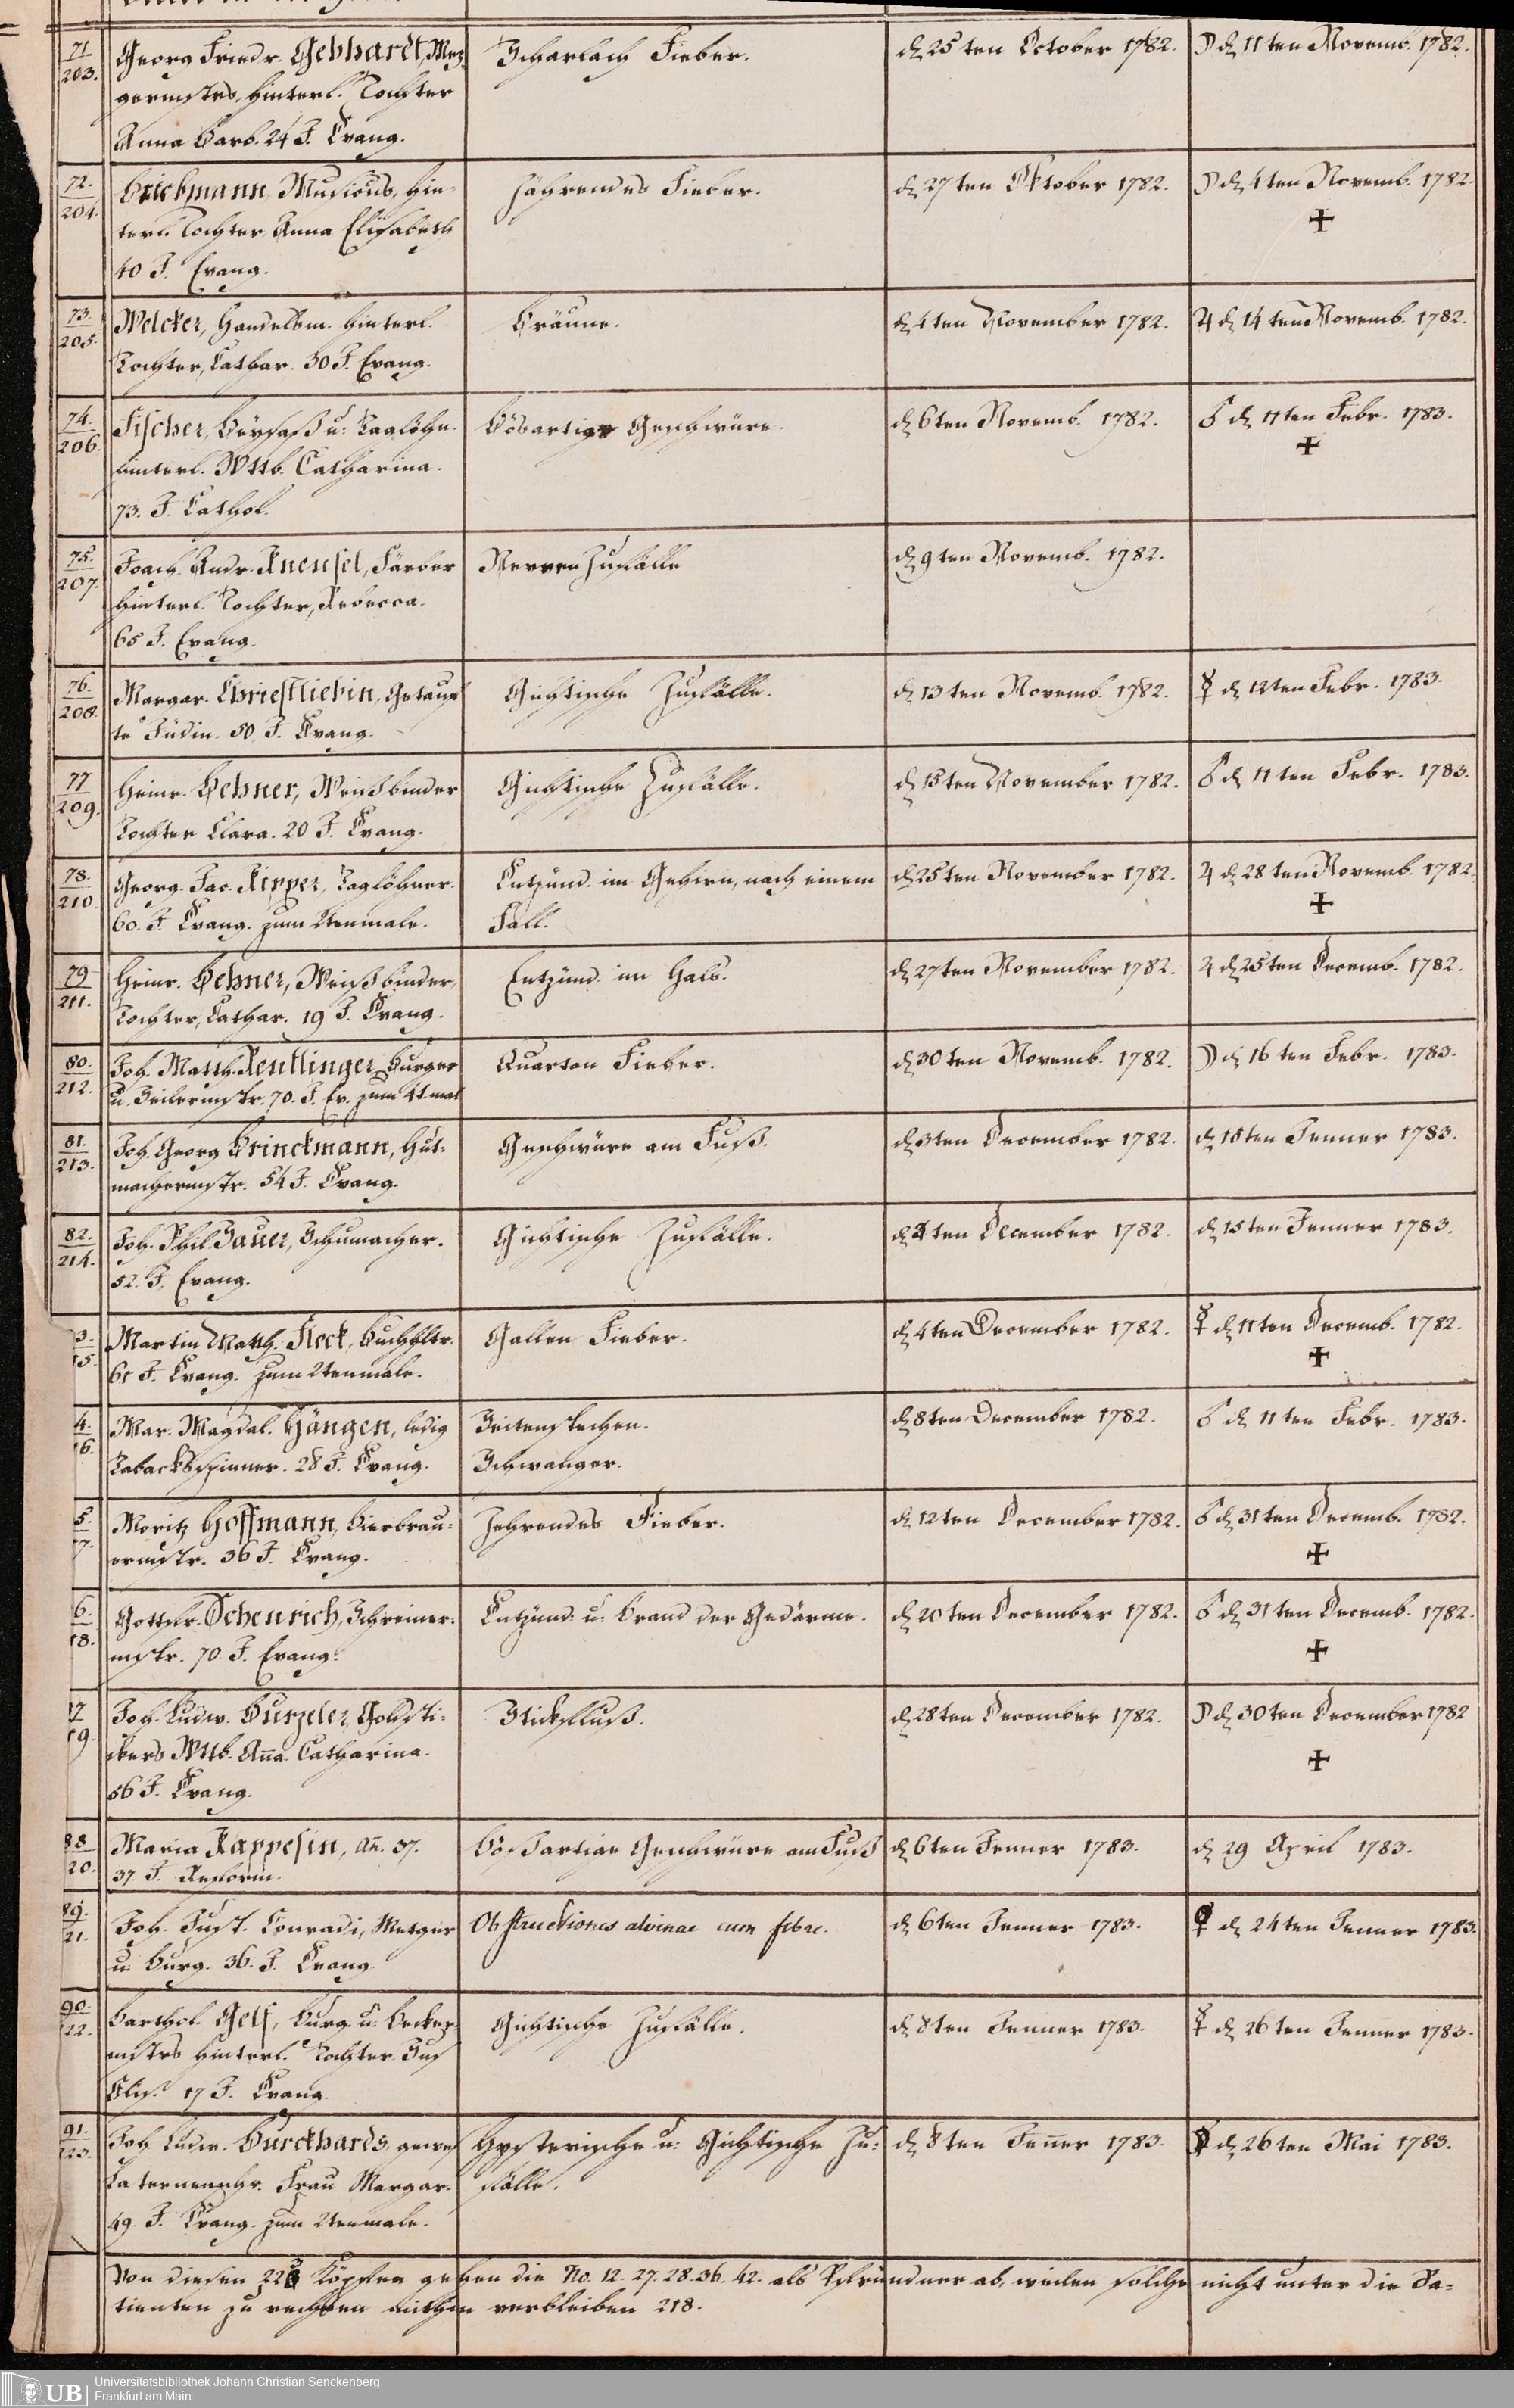 71
203.
Georg Friedr. Gebhardt, Mez-
germstrs. hinterl. Tochter
Anna Barb. 24 J. Evang.
Scharlach Fieber.
d. 25ten October 1782.
☽ d. 11ten Novemb. 1782.
72.
204.
Musicus, hin-
terl. Tochter Anna Elisabeth
40 J. Evang.
Zährendes Fieber.
d. 27ten Oktober 1782.
☽ d. 4ten Novemb. 1782.
+
73.
205.
Welcker, Handelsm. hinterl.
Tochter, Cathar. 30 J. Evang.
Bräune.
d. 4ten November 1782.
♃ d. 14ten Novemb. 1782.
74.
206.
Fischer, Beysaß u. Taglöhn.
hinterl. Wttb. Catharina.
73. J. Cathol.
Bösartige Geschwüre.
d. 6ten Novemb. 1782.
♂ d. 11ten Febr. 1783.
+
75.
207.
Joach. Andr. Kneusel, Färber
hinterl. Tochter, Rebecca.
65 J. Evang.
Nerven Zufälle
d. 9ten Novemb. 1782.
76.
208.
Margar. Christliebin, Getauf
te Jüdin. 50 J. Evang.
Gichtische Zufälle.
d. 13ten Novemb. 1782.
☿ d. 12ten Febr. 1783.
77
209.
Heinr. Lehner, Weißbinder
Tochter Clara. 20 J. Evang.
Gichtische Zufälle.
d. 15ten November 1782.
♂ d. 11ten Febr. 1783.
78.
210.
Georg Jac. Kipper, Taglöhner.
60. J. Evang. zum 2tenmale.
Entzünd. im Gehirn, nach einem
Fall.
d. 25ten November 1782.
♃ d. 28ten Novemb. 1782.
+
79
211.
Heinr. Lehner, Weißbinder,
Tochter, Cathar. 19 J. Evang.
Entzünd. im Hals.
d. 27ten November 1782.
♃ d. 25ten Decemb. 1782.
80.
212.
Joh. Matth. Reutlinger Burger
u. Seilermstr. 70. J. Ev. zum 4t.mal
Quartan Fieber.
d. 30ten Novemb. 1782.
☽ d. 16ten Febr. 1783.
81.
213.
Joh. Georg Brinckmann, Hut-
machermstr. 54 J. Evang.
Geschwüre am Fuß.
d. 3ten December 1782.
d. 18ten Jenner 1783.
82.
214.
Joh. Phil. Sauer, Schumacher.
52. J. Evang.
Gichtische Zufälle.
d. 4ten December 1782.
d. 15ten Jenner 1783.
3.
15.
Martin Matth. Fleck, Buchhltr.
61 J. Evang. zum 2tenmale.
Gallen Fieber.
d. 4ten December 1782.
☿ d. 11ten Decemb. 1782.
+
4.
16.
Mar. Magdal. Hängen, ledig
Tabackspinner. 28 J. Evang.
Seitenstechen.
Schwanger.
d. 8ten December 1782.
♂ d. 11ten Febr. 1783.
5.
17.
Moritz Hoffmann, Bierbrau-
ermstr. 36 J. Evang.
Zehrendes Fieber.
d. 12ten December 1782.
♂ d. 31ten Decemb. 1782.
+
6.
18.
Gottfr. Schenrich, Schreiner-
mstr. 70 J. Evang.
Entzünd. u. Brand der Gedärme.
d. 20ten December 1782.
♂ d. 31ten Decemb. 1782.
+
87
19.
Joh. Ludw. Burzeler, Goldsti-
kers Wttb. Anna Catharina.
56 J. Evang.
Stickfluß.
d. 28ten December 1782.
☽ d. 30ten December 1782
+
88
20.
Maria Kappesin, An. 37.
37 J. Reform.
Bösartige Geschwüre am Fuß
d. 6ten Jenner 1783.
d. 29 April 1783.
89.
21.
Joh. Just. Conradi, Metzger
u. Burg. 36. J. Evang.
Obstructiones alvinae cum febre.
d. 6ten Jenner 1783.
♀ d. 24ten Jenner 1783.
90.
22.
Barthol. Gelf, Burg. u. Becker-
mstrs hinterl. Tochter Sus
Elis. 17 J. Evang.
Gichtische Zufälle.
d. 8ten Jenner 1783.
☿ d. 26ten Jenner 1783.
91.
223.
Joh. Ludw. Burckhards, gewes
Laternenfhr. Frau Margar.
49. J. Evang. zum 2tenmale.
Hysterische u. Gichtische Zu-
fälle.
d. 8ten Jenner 1783.
d. 26ten Mai 1783.
Von diesen 223 Köpfen gehen die No. 12. 27. 28. 36. 42. als Pfründner ab, weilen solche nicht unter die Pa-
tienten zu rechnen mithin verbleiben 218.
UB
Universitätsbibliothek Johann Christian Senckenberg
Frankfurt am Main